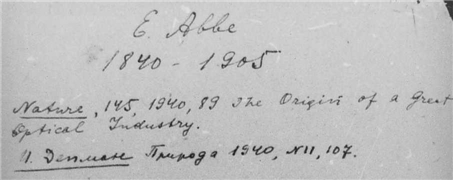 E. Abbe
1840 - 1905
Nature, 145, 1940, 89 The Origin of a Great
Optical Industry.
Природа 1940, N11, 107.